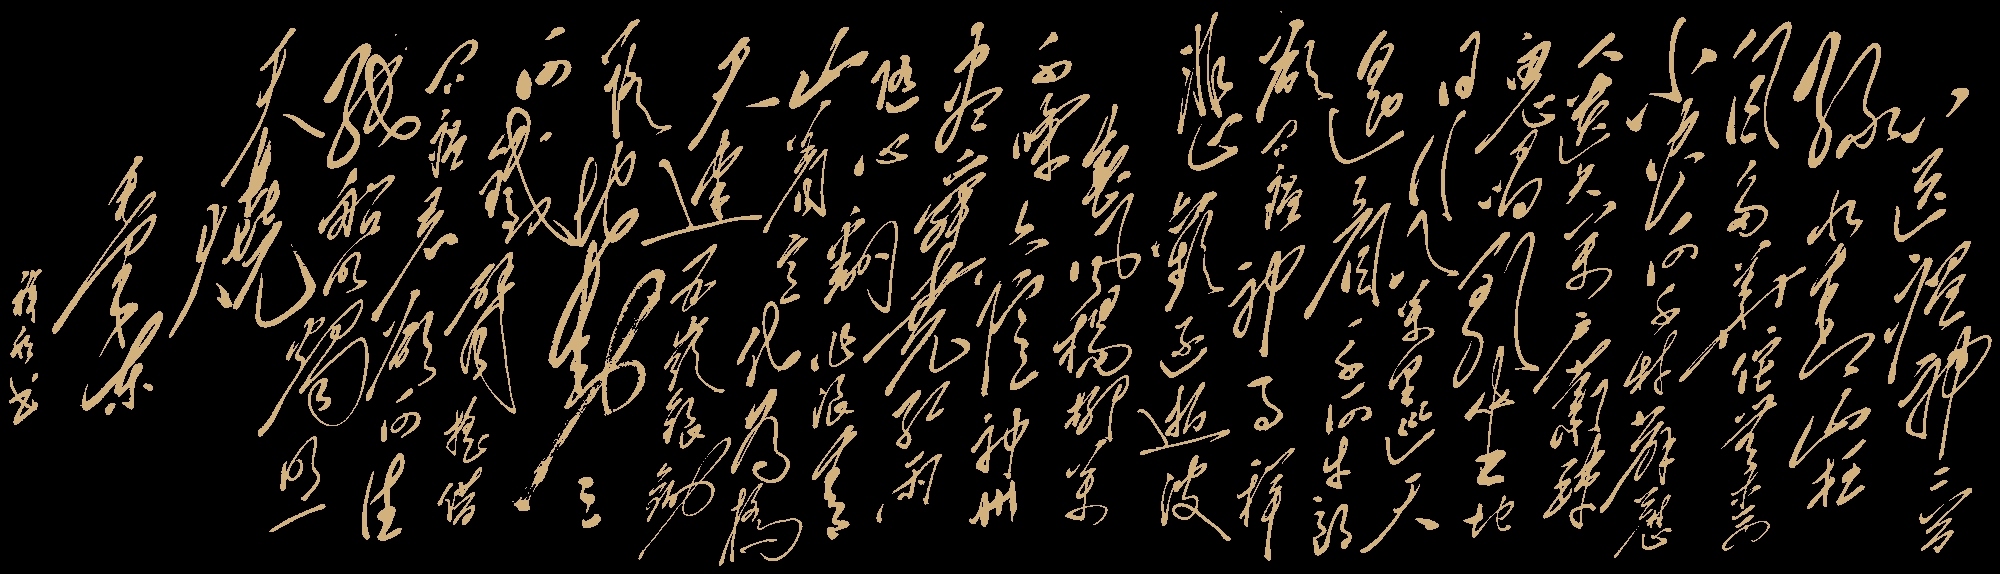 送瘟神二首
绿水青山枉
自多华佗无奈
小虫何千村薜荔
人遗矢万户萧疏
鬼唱歌坐地
日行八万里巡天
遥看一千河牛郎
欲问瘟神事一样
悲欢逐逝波
春风杨柳万
千条六亿神州
尽舜尧红雨
随心翻作浪青
山着意化为桥
天连五岭银锄
落地动三
河铁臂摇借
问瘟君欲何往
纸船明烛照
天烧
毛泽东